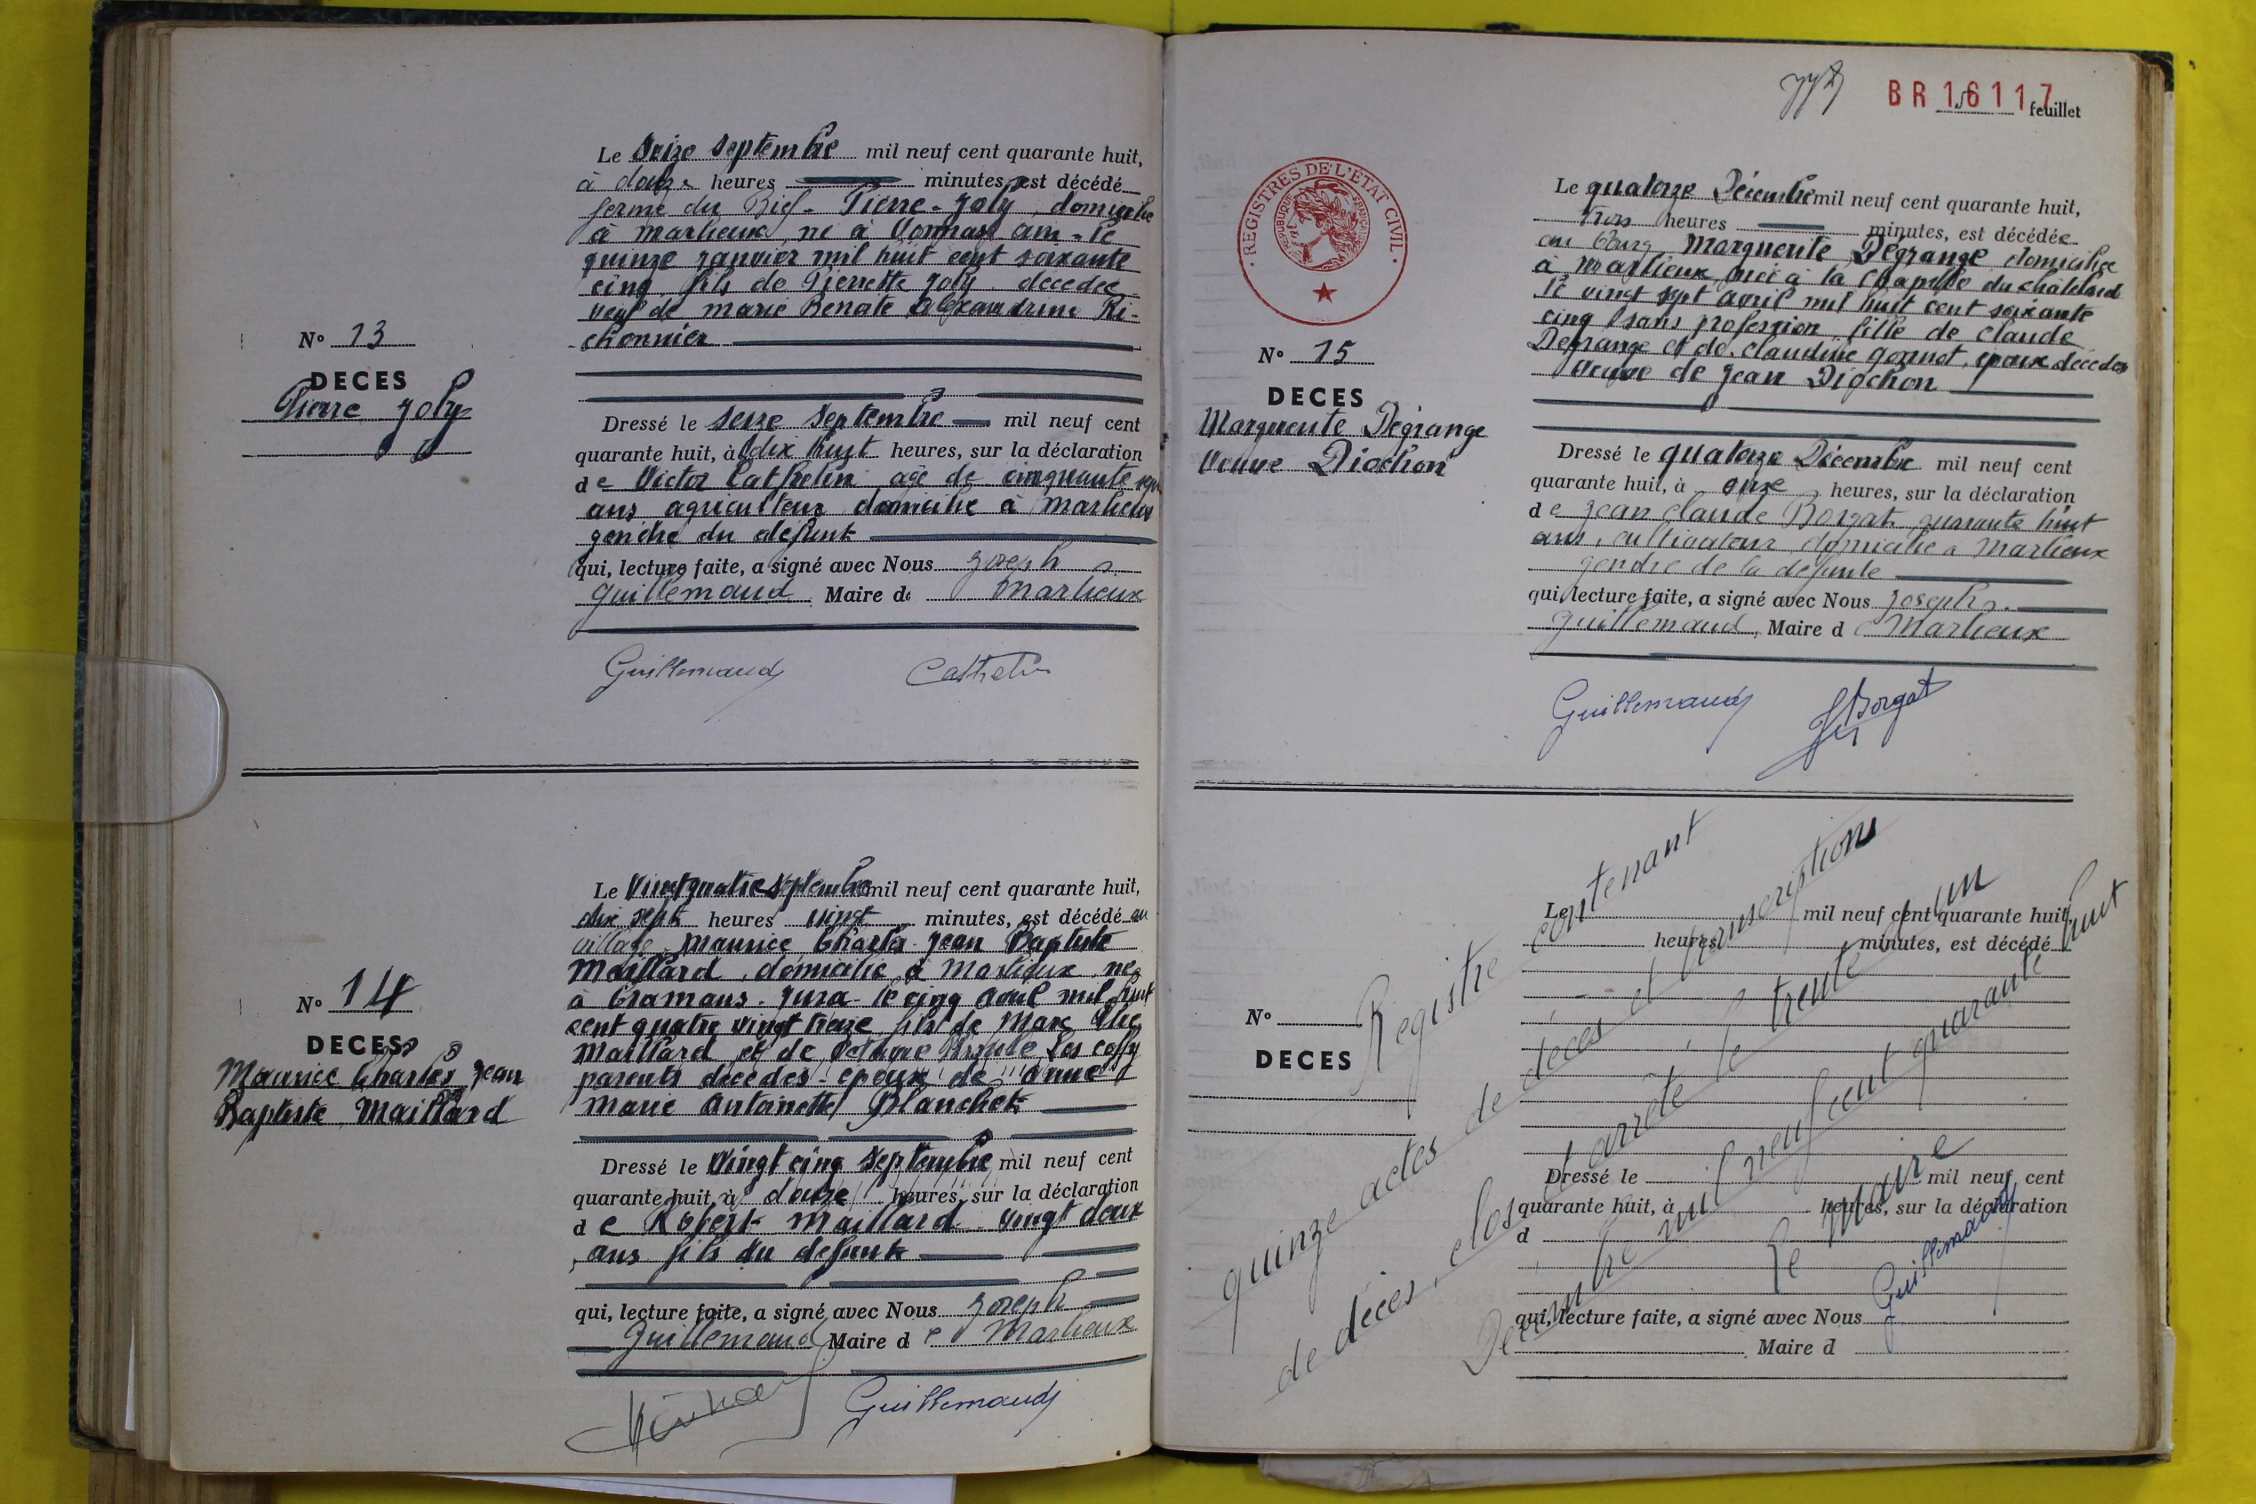 Le Seize Septembre mil neuf cent quarante huit,
à douze heures minutes, est décédé
ferme du Bief - Pierre - Joly, domicilié
à Marlieux, né à Vonnas Ain - le
quinze janvier mil huit cent soixante
cinq fils de Pierrette Joly décédée
veuf de Marie Benoite Alexandrine Ri-
chonnier
N° 13
DECES
Pierre Joly
Dressé le seize Septembre mil neuf cent
quarante huit, à dix huit heures, sur la déclaration
de Victor Cathelin agé de cinquante sept
ans agriculteur domicilié à Marlieux
gendre du défunt
qui, lecture faite, a signé avec Nous Joseph
Guillemaud Maire de Marlieux
Guillemaud Cathelin
Le Vingt quatre Septembre mil neuf cent quarante huit,
dix sept heures vingt minutes, est décédé au
village Maurice Charles Jean Baptiste
Maillard, domicilié à Marlieux né
à Cramans - Jura - le cinq Avril mil huit
cent quatre vingt treize fils de Marc
Maillard et de
parents décédés - époux de Anne
Marie Antoinette Blanchet
N° 14
DECES
Maurice Charles Jean
Baptiste Maillard
Dressé le Vingt cinq Septembre mil neuf cent
quarante huit, à douze heures, sur la déclaration
de Robert Maillard vingt deux
ans fils du défunt
qui, lecture faite, a signé avec Nous Joseph
Guillemaud Maire de Marlieux
Guillemaud
BR 16117
feuillet
REGISTRES DE L'ETAT CIVIL
Le quatorze Décembre mil neuf cent quarante huit,
trois heures minutes, est décédée
au bourg Marguerite Dégrange domiciliée
à Marlieux, née à la Chapelle du Châtelard
le vingt sept avril mil huit cent soixante
cinq sans profession fille de Claude
Degrange et de Claudine Gonnot, époux décédés
Veuve de Jean Diochon
N° 15
DECES
Marguerite Dégrange
Veuve Diochon
Dressé le quatorze Décembre mil neuf cent
quarante huit, à onze heures, sur la déclaration
de Jean Claude Borgat quarante huit
ans, cultivateur domicilié à Marlieux
gendre de la défunte
qui, lecture faite, a signé avec Nous Joseph
Guillemaud, Maire de Marlieux
Guillemaud Borgat
Le mil neuf cent quarante huit,
heures minutes, est décédé
N°
DECES
Dressé le mil neuf cent
quarante huit, à heures, sur la déclaration
d
qui, lecture faite, a signé avec Nous
Maire d
Registre contenant
quinze actes de décès et transcription
de décès, clos et arrêté le trente et un
Décembre mil neuf cent quarante huit
Le Maire
Guillemaud